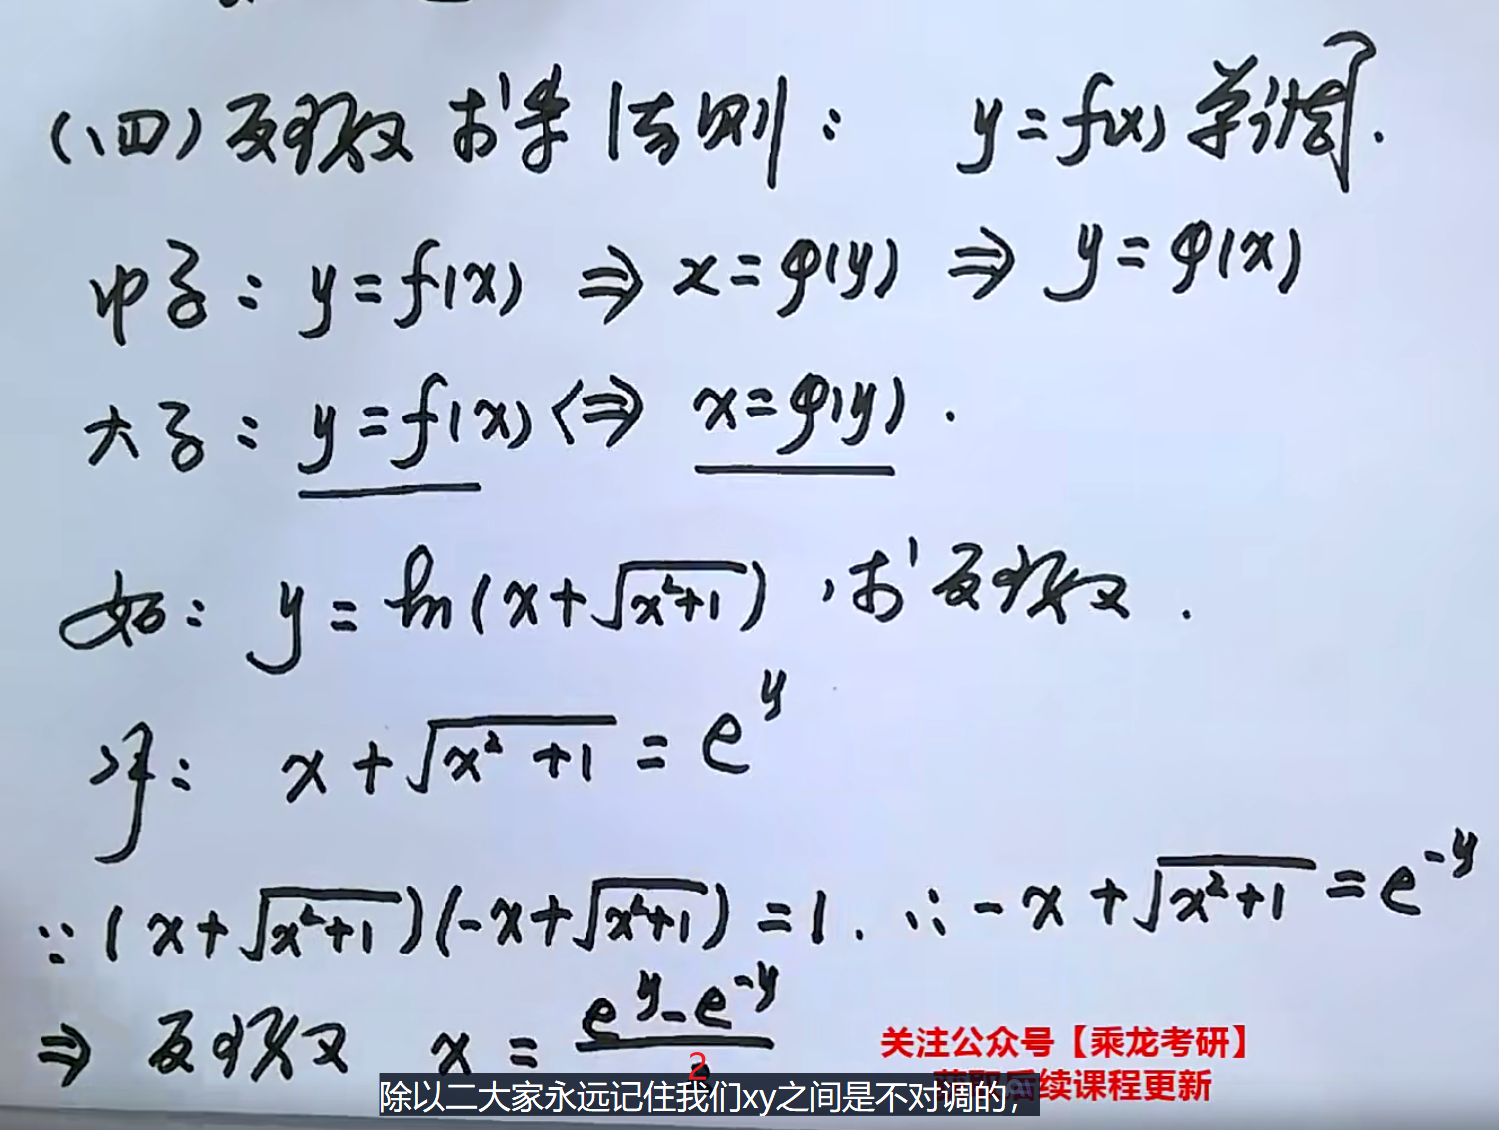 (四) 反函数求导法则： y=f(x)单调.
中学：y=f(x) ⇒ x=φ(y) ⇒ y=φ(x)
大学：y=f(x) ⇔ x=φ(y).
如：y=ln(x+√(x²+1))，求反函数.
解：x+√(x²+1)=e^y
∵(x+√(x²+1))(-x+√(x²+1))=1. ∴-x+√(x²+1)=e^-y
⇒反函数 x=(e^y-e^-y)/2
关注公众号【乘龙考研】
获取后续课程更新
除以二大家永远记住我们xy之间是不对调的，